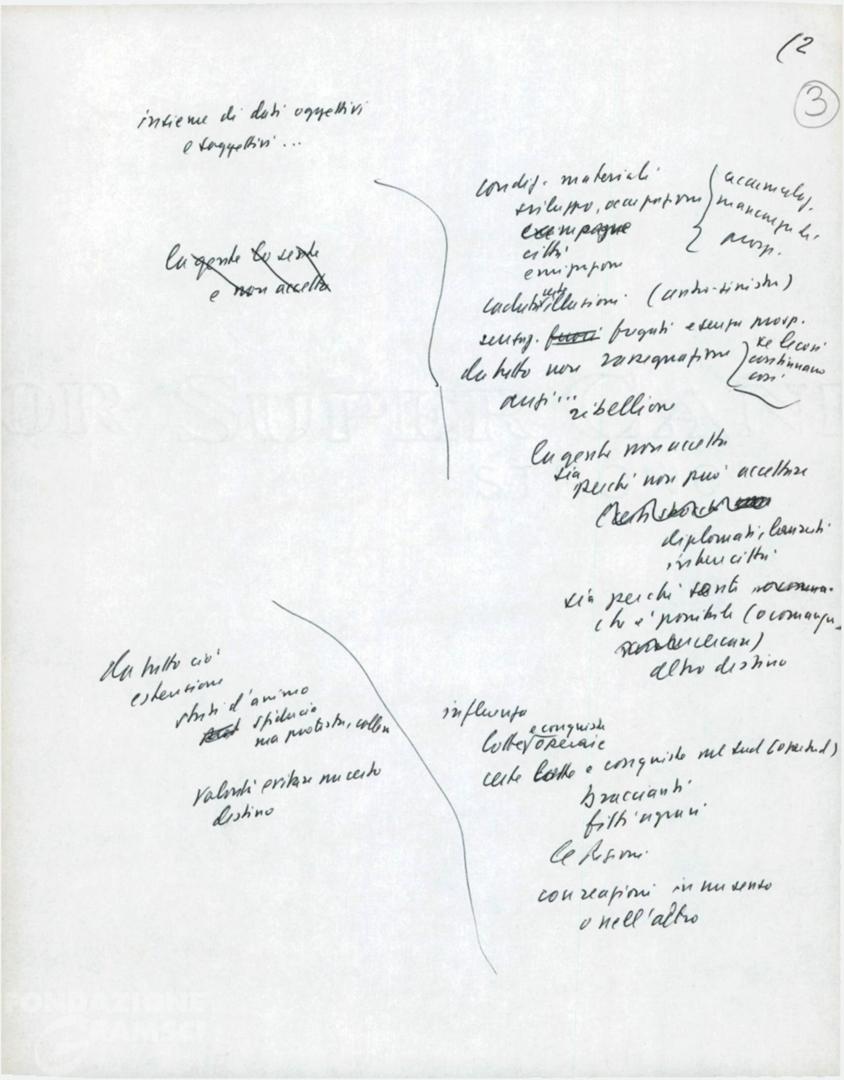 (2
3
insieme di dati oggettivi
e soggettivi ...
condiz. materiali
sviluppo, occupazione
città
emigrazione
accumulaz.
mancanza di
prosp.
la gente lo sente
e non accetta
caduta certe illusioni (centro-sinistra)
sensaz. fuori frugati e senza prosp.
da tutto non rassegnazione
se le cose
continuano
così
anzi...
ribellione
la gente non accetta
sia
perché non può accettare
diplomati, laureati
sia perché sente
che è possibile (o comunque
altro destino
da tutto ciò
estensione
stati d'animo
sfiducia
ma protesta, collera
volontà evitare un certo
destino
influenza
lotte e conquiste operaie
certe lotte e conquiste nel sud (o pei sud)
braccianti
fitti agrari
le Regioni
con reazioni in un senso
o nell'altro
FONDAZIONE
GRAMSCI